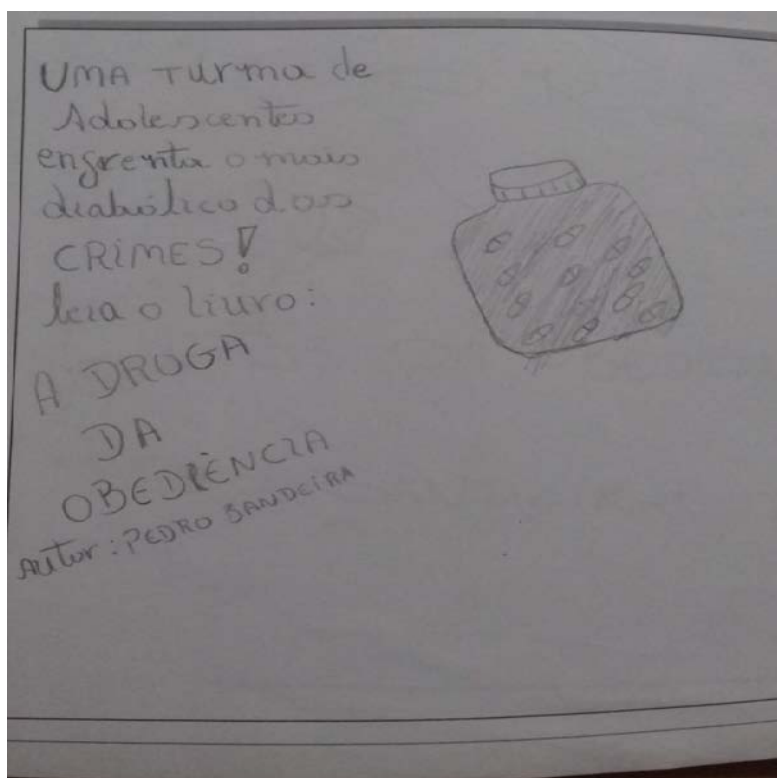 UMA Turma de
Adolescentes
enfrenta o mais
diabólico dos
CRIMES!
leia o livro:
A DROGA
DA
OBEDIÊNCIA
Autor: PEDRO BANDEIRA